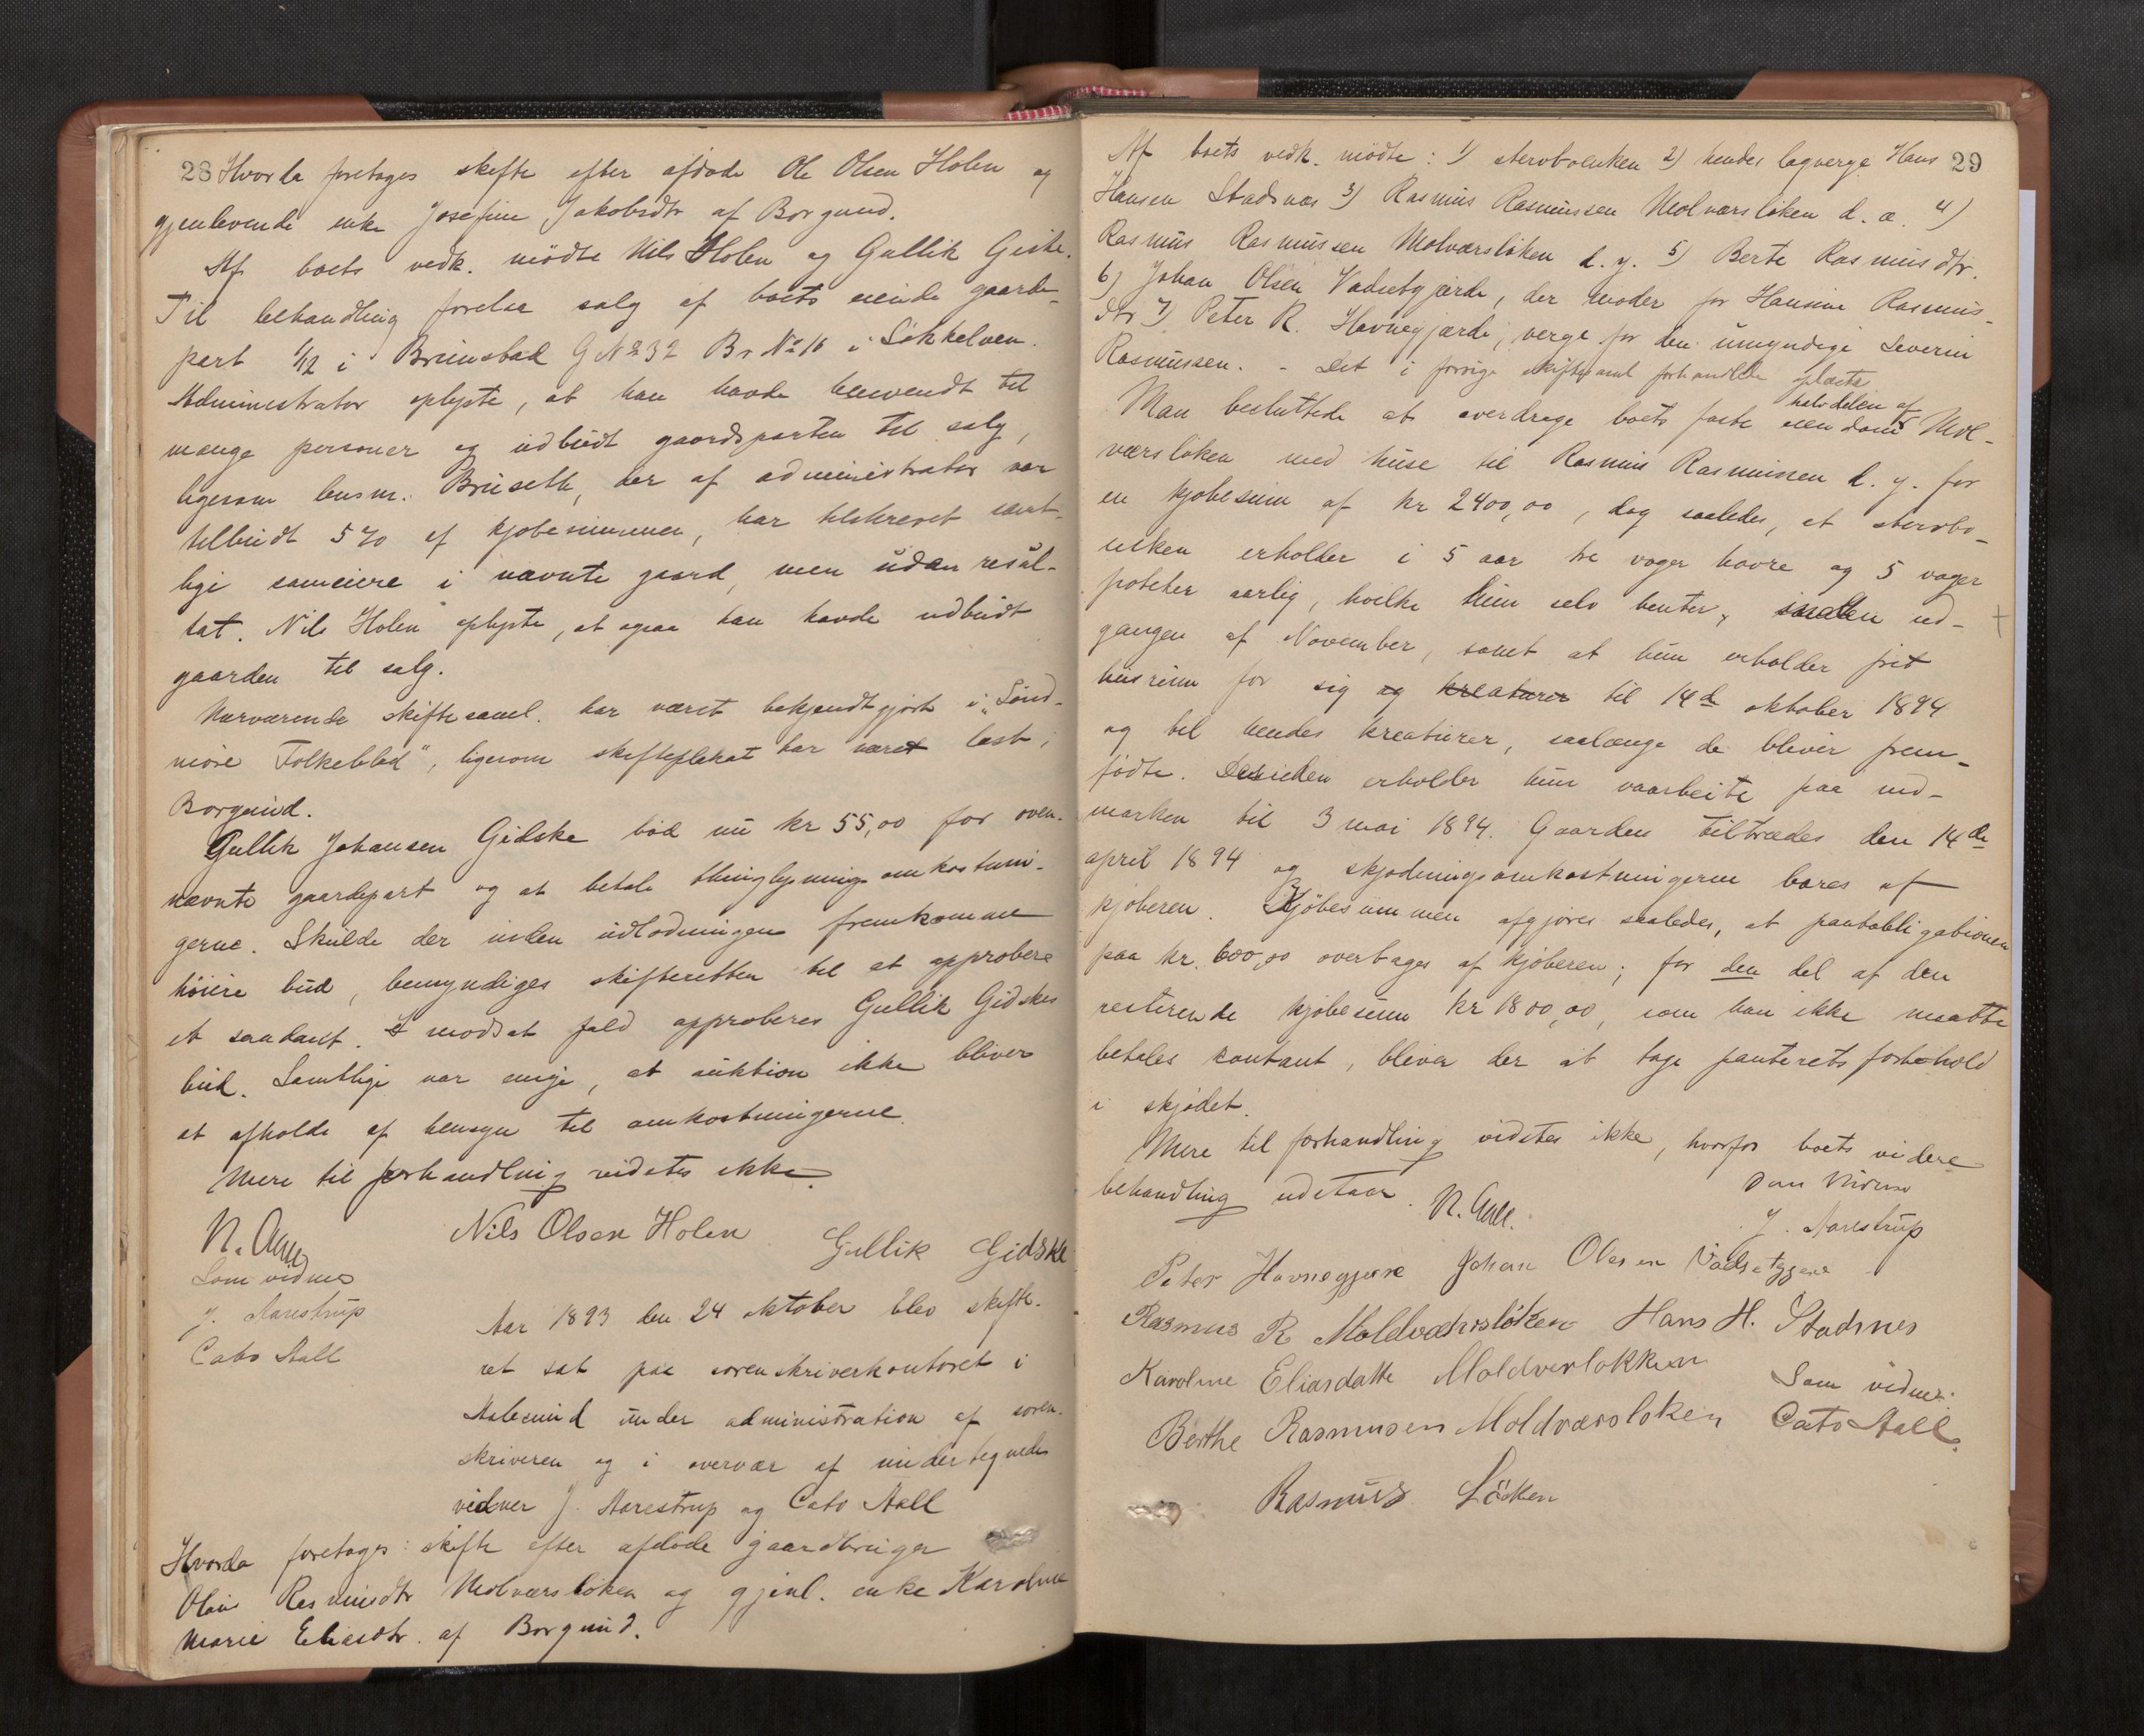 28 Hvorda foretages skifte efter afdøde Ole Olsen Holen og
gjenlevende enke Josefine Jakobsdtr af Borgund.
Af boets vedk. mødte Nils Holen og Gullik Giske.
Til behandling forelaa salg af boets eiende gaard-
part 1/12 i Brunstad G No 32 Br No 16 i Søkkelven.
Administrator oplyste, at han havde henvendt til
mange personer og udbudt gaardsparten til salg,
ligesom lensm. Bruseth, der af administrator var
tilbudt 5 % af kjøbesummen, har tilskrevet samt-
lige sameiere i nævnte gaard, men uden resul-
tat. Nils Holen oplyste, at ogsaa han havde udbudt
gaarden til salg.
Nærværende skiftesaml. har været bekjendtgjort i „Sønd-
møre Folkeblad", ligesom skifteplakat har været læst i
Borgund.
Gullik Johansen Gidske bød nu kr 55,00 for oven-
nævnte gaardpart og at betale thinglysningsomkostnin-
gerne. Skulde der inden udlodningen fremkomme
høiere bud, bemyndiges skifteretten til at approbere
et saadant. I modsat fald approberes Gullik Gidskes
bud. Samtlige var enige, at auktion ikke bliver
at afholde af hensyn til omkostningerne.
Mere til forhandling vidstes ikke.
N. Aall
Nils Olsen Holen Gullik Gidske
Som vidner
J. Aarestrup
Cato Aall
Aar 1893 den 24 oktober blev skifte-
ret sat paa sorenskriverkontoret i
Aalesund under administration af soren-
skriveren og i overvær af undertegnede
vidner J. Aarestrup og Cato Aall
Hvorda foretoges: skifte efter afdøde gaardbruger
Rasmusdtr Molværsløken og gjenl. enke Karoline
Marie Eliasdtr. af Borgund.
29
Af boets vedk. mødte: 1) stervboenken 2) hendes lagverge Hans
Hansen Stadsnæs 3) Rasmus Rasmussen Molværsløken d. æ. 4)
Rasmus Rasmussen Molværsløken d. y. 5) Berte Rasmusdtr.
6) Johan Olsen Vadsetgjærde, der møder for Hansine Rasmus-
dtr 7) Peter R. Havnegjærde, verge for den umyndige Severin
Rasmussen. - Det i forrige skiftesaml forhandlede oplæste
Man besluttede at overdrage boets faste eiendom halvdelen af Mol-
værsløken med huse til Rasmus Rasmussen d. y. for
en kjøbesum af kr 2400,00, dog saaledes, at stervbo-
enken erholder i 5 aar tre voger havre og 5 voger
poteter aarlig, hvilke hun selv henter, inden ud-
gangen af November, samt at hun erholder frit
husrum for sig og kreaturer til 14de oktober 1894
og til hendes kreaturer, saalænge de bliver frem-
fødte. Desuden erholder hun vaarbeite paa ind-
marken til 3 mai 1894. Gaarden tiltrædes den 14de
april 1894 og skjødningsomkostningerne bæres af
kjøberen. Kjøbesummen afgjøres saaledes, at pantobligationen
paa kr. 600,00 overtages af kjøberen; for den del af den
resterende kjøbesum kr 1800,00, som han ikke maatte
betales kontant, bliver der at tage panterets forbehold
i skjødet.
Mere til forhandling vidstes ikke, hvorfor boets videre
behandling udstaar. N. Aall.
Som vidner
J. Aarestrup
Peter Havnegjære Johan Olesen Vadsetgjære
Rasmus R Moldværsløken Hans H. Stadsnes
Karoline Eliasdatte Moldverløkken
Som vidne:
Berthe Rasmusen Moldværsløken Cato Aall.
Rasmus Løken